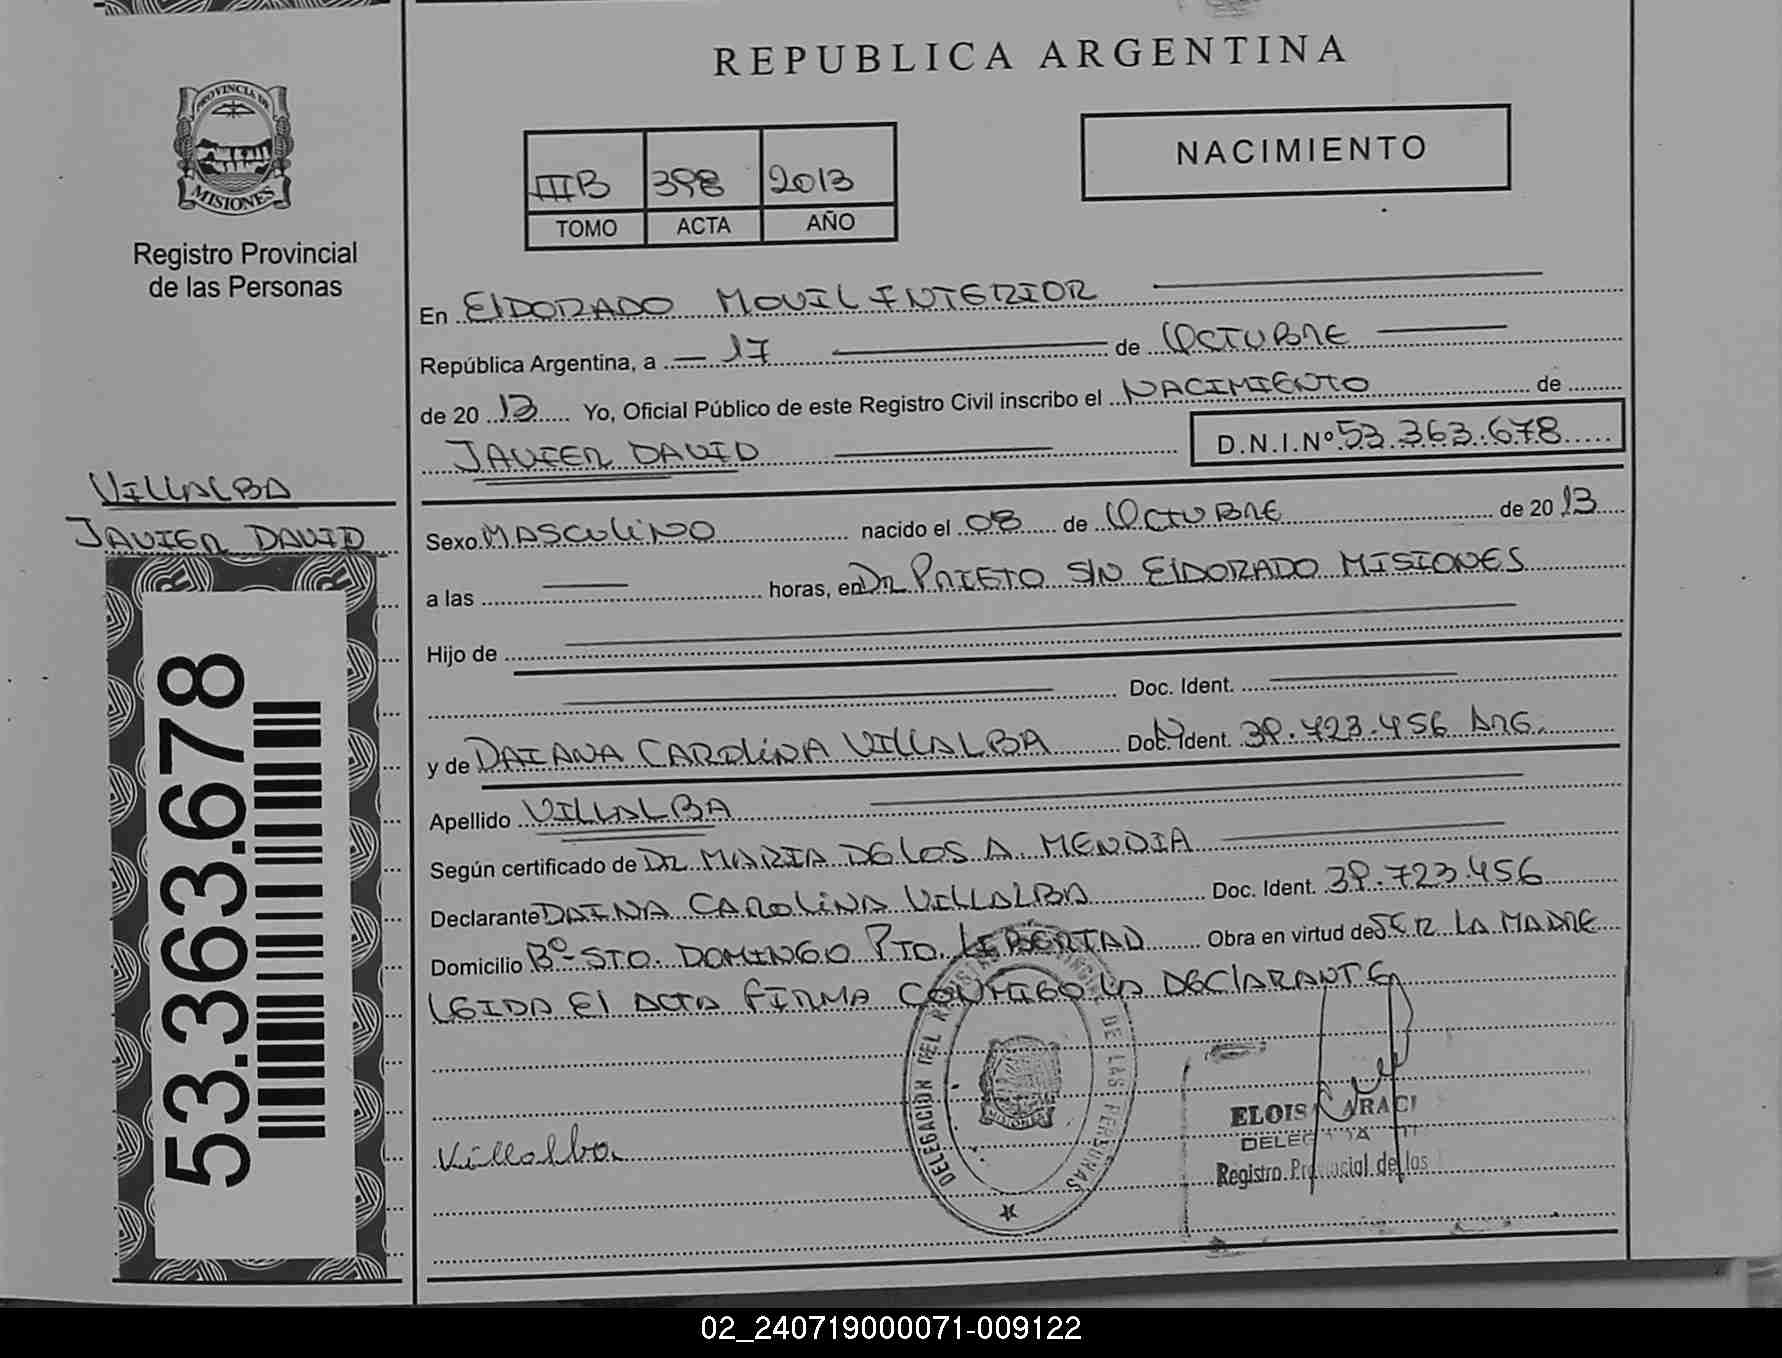 REPUBLICA ARGENTINA
PROVINCIA DE
MISIONES
Registro Provincial
de las Personas
NACIMIENTO
IIIB 398 2013
TOMO ACTA AÑO
En ElDORADO MOVIL INTERIOR
República Argentina, a 17 de OCTUBRE
de 20 13 Yo, Oficial Público de este Registro Civil inscribo el NACIMIENTO de
JAVIER DAVID D.N.I.Nº 53.363.678
VILLALBA
JAVIER DAVID
53.363.678
Sexo MASCULINO nacido el 08 de OCTUBRE de 20 13
a las horas, en Dr PRIETO S/N ElDORADO MISIONES
Hijo de
Doc. Ident.
y de DAIANA CAROLINA VILLALBA Doc. Ident. 39.723.456 ARG.
Apellido VILLALBA
Según certificado de Dr MARIA DE LOS A. MENDIA
Declarante DAINA CAROLINA VILLALBA Doc. Ident. 39.723.456
Domicilio Bº STO. DOMINGO PTO. LIBERTAD Obra en virtud de SER LA MADRE
LEIDA El ACTA FIRMA CONMIGO LA DECLARANTE
Villalba
DELEGACION DEL DE LAS PERSONAS
MISIONES
Registro Provincial de las
02_240719000071-009122